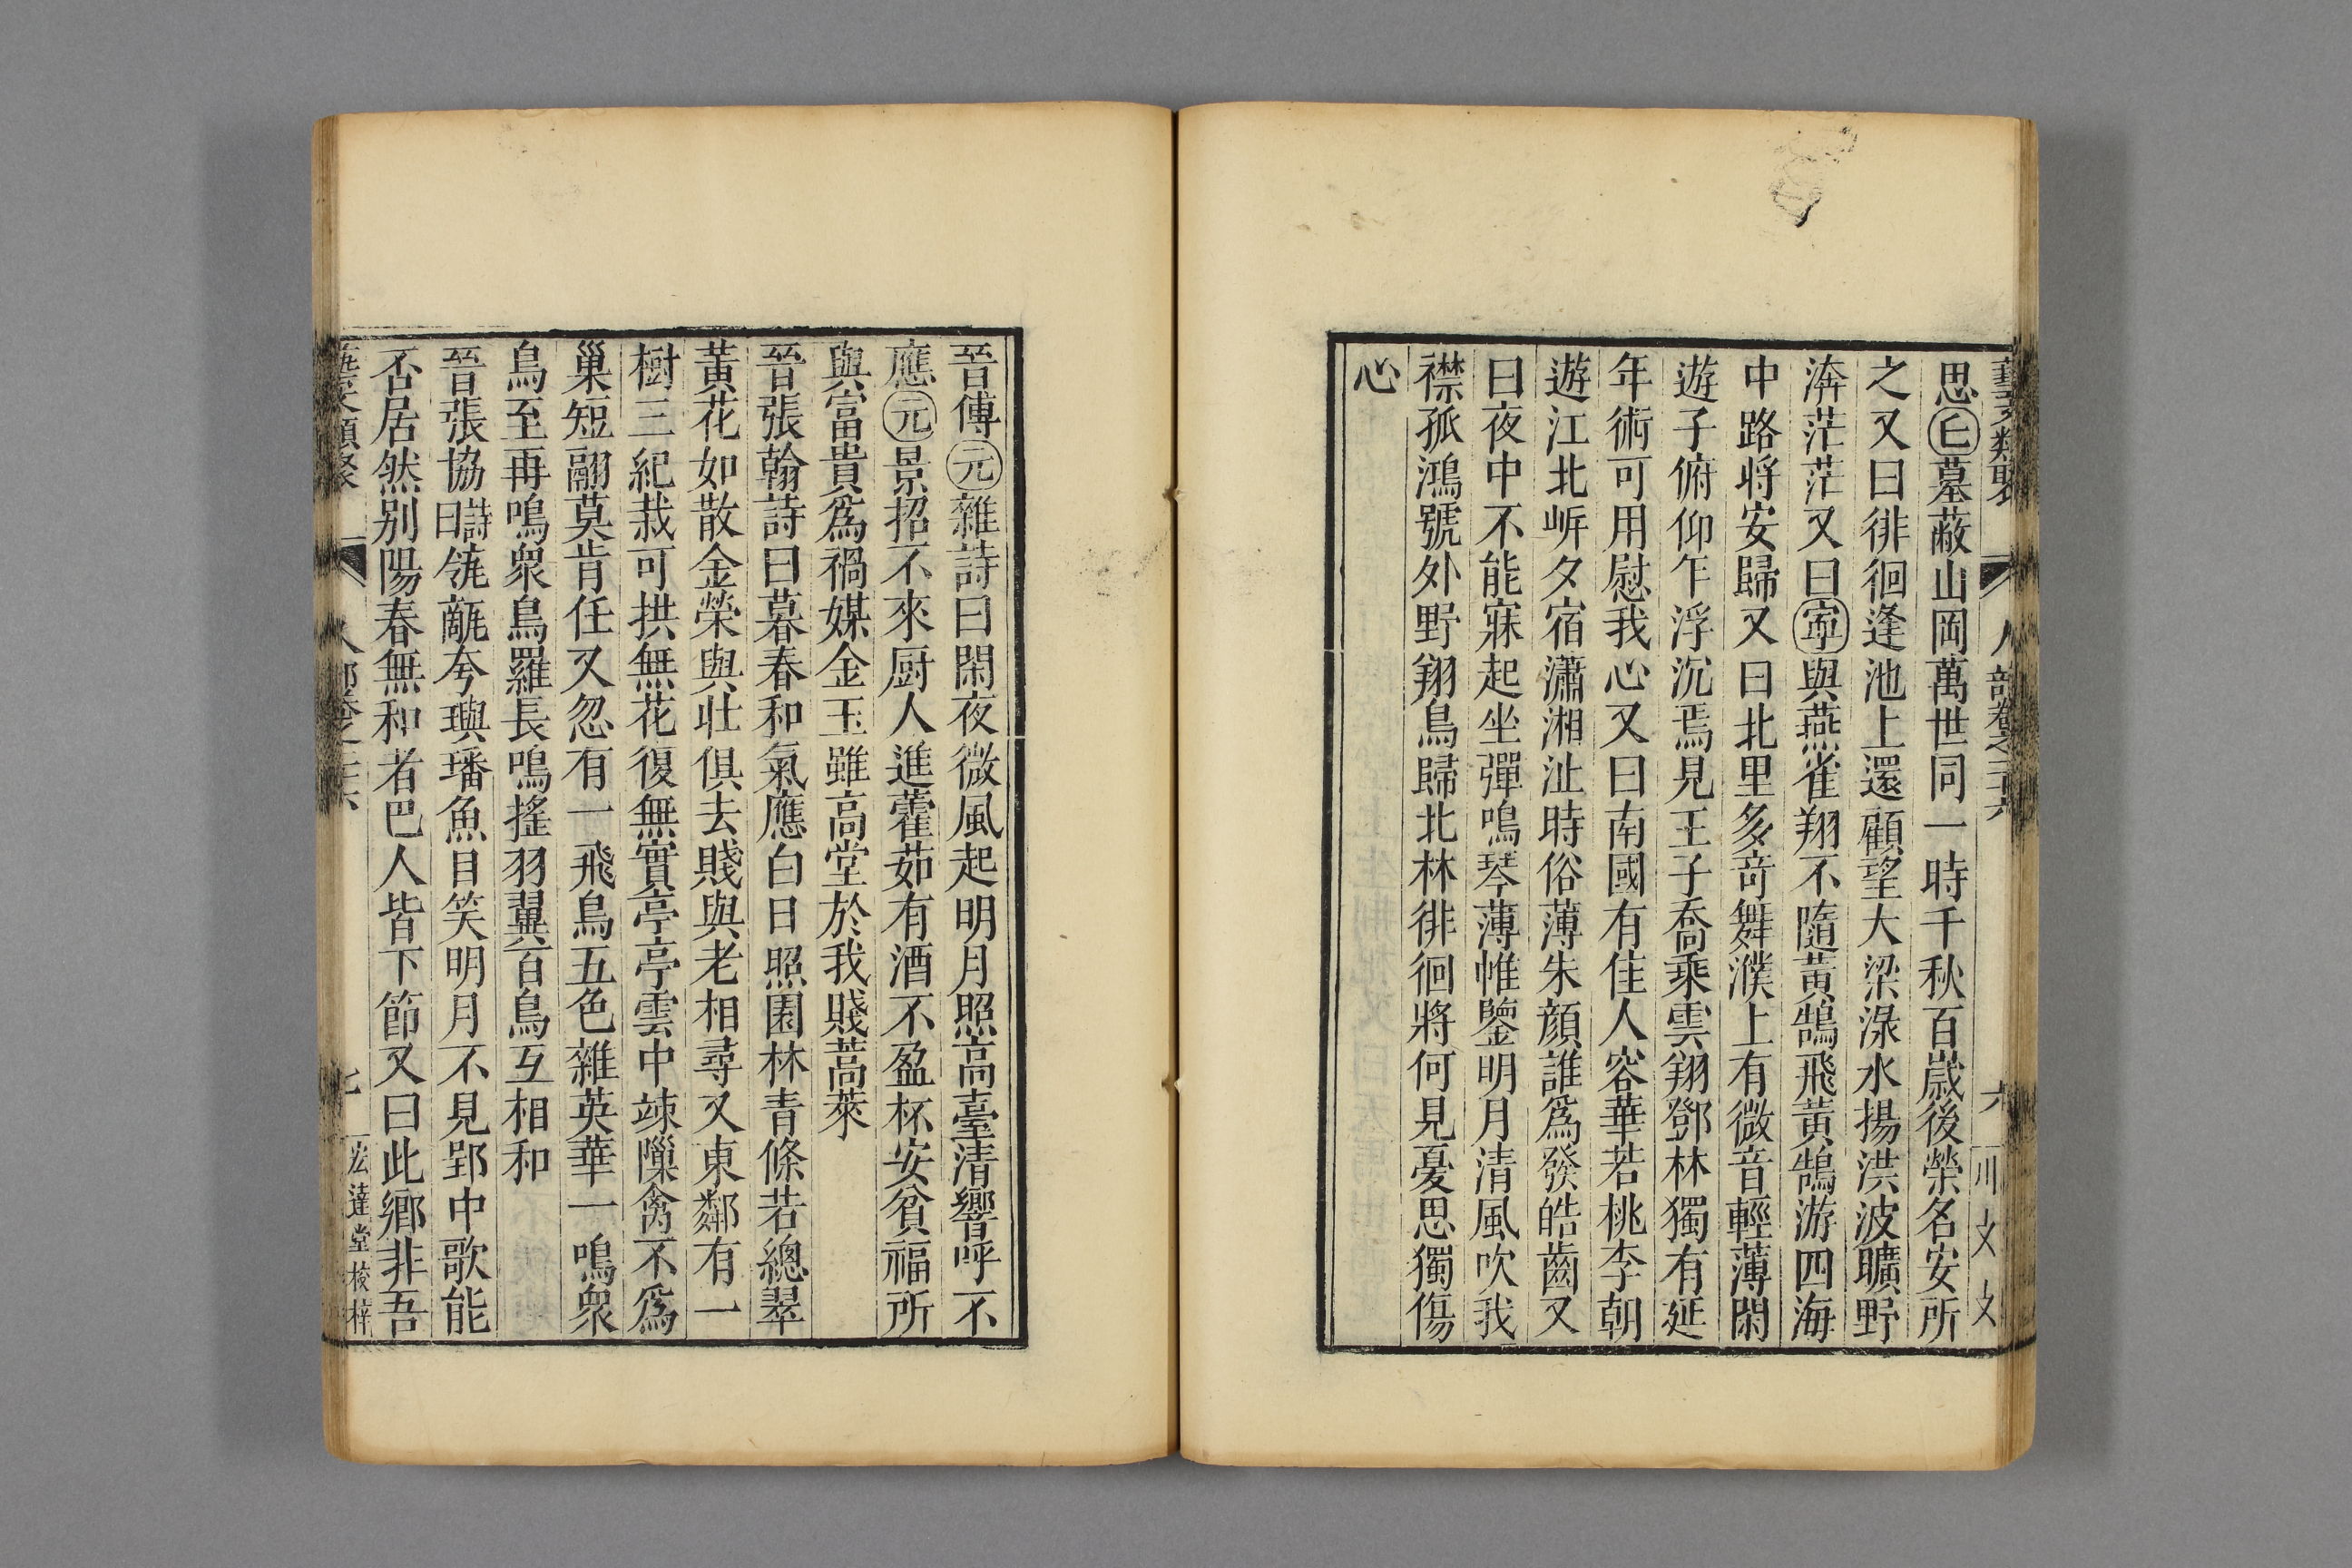 藝文類聚 人部卷之二十六 六
思亡墓蔽山岡萬世同一時千秋百歲後榮名安所
之又曰徘徊逢池上還顧望大梁淥水揚洪波曠野
漭茫茫又曰寧與燕雀翔不隨黃鵠飛黃鵠游四海
中路將安歸又曰北里多竒舞濮上有微音輕薄閑
遊子俯仰乍浮沉焉見王子喬乘雲翔鄧林獨有延
年術可用慰我心又曰南國有佳人容華若桃李朝
遊江北㟁夕宿瀟湘沚時俗薄朱顏誰爲發皓齒又
曰夜中不能寐起坐彈鳴琴薄帷鑒明月清風吹我
襟孤鴻號外野翔鳥歸北林徘徊將何見憂思獨傷
心
晉傅元雜詩曰閑夜微風起明月照高臺清響呼不
應元景招不來厨人進藿茹有酒不盈杯安貧福所
與富貴爲禍媒金玉雖高堂於我賤蒿萊
晉張翰詩曰暮春和氣應白日照園林青條若總翠
黃花如散金榮與壯俱去賤與老相尋又東鄰有一
樹三紀栽可拱無花復無實亭亭雲中竦隟禽不爲
巢短翮莫肯任又忽有一飛鳥五色雜英華一鳴衆
鳥至再鳴衆鳥羅長鳴搖羽翼百鳥互相和
晉張協詩曰瓴甋夸璵璠魚目笑明月不見郢中歌能
否居然别陽春無和者巴人皆下節又曰此鄉非吾
藝文類聚 人部卷之二十六 七 宏達堂校梓